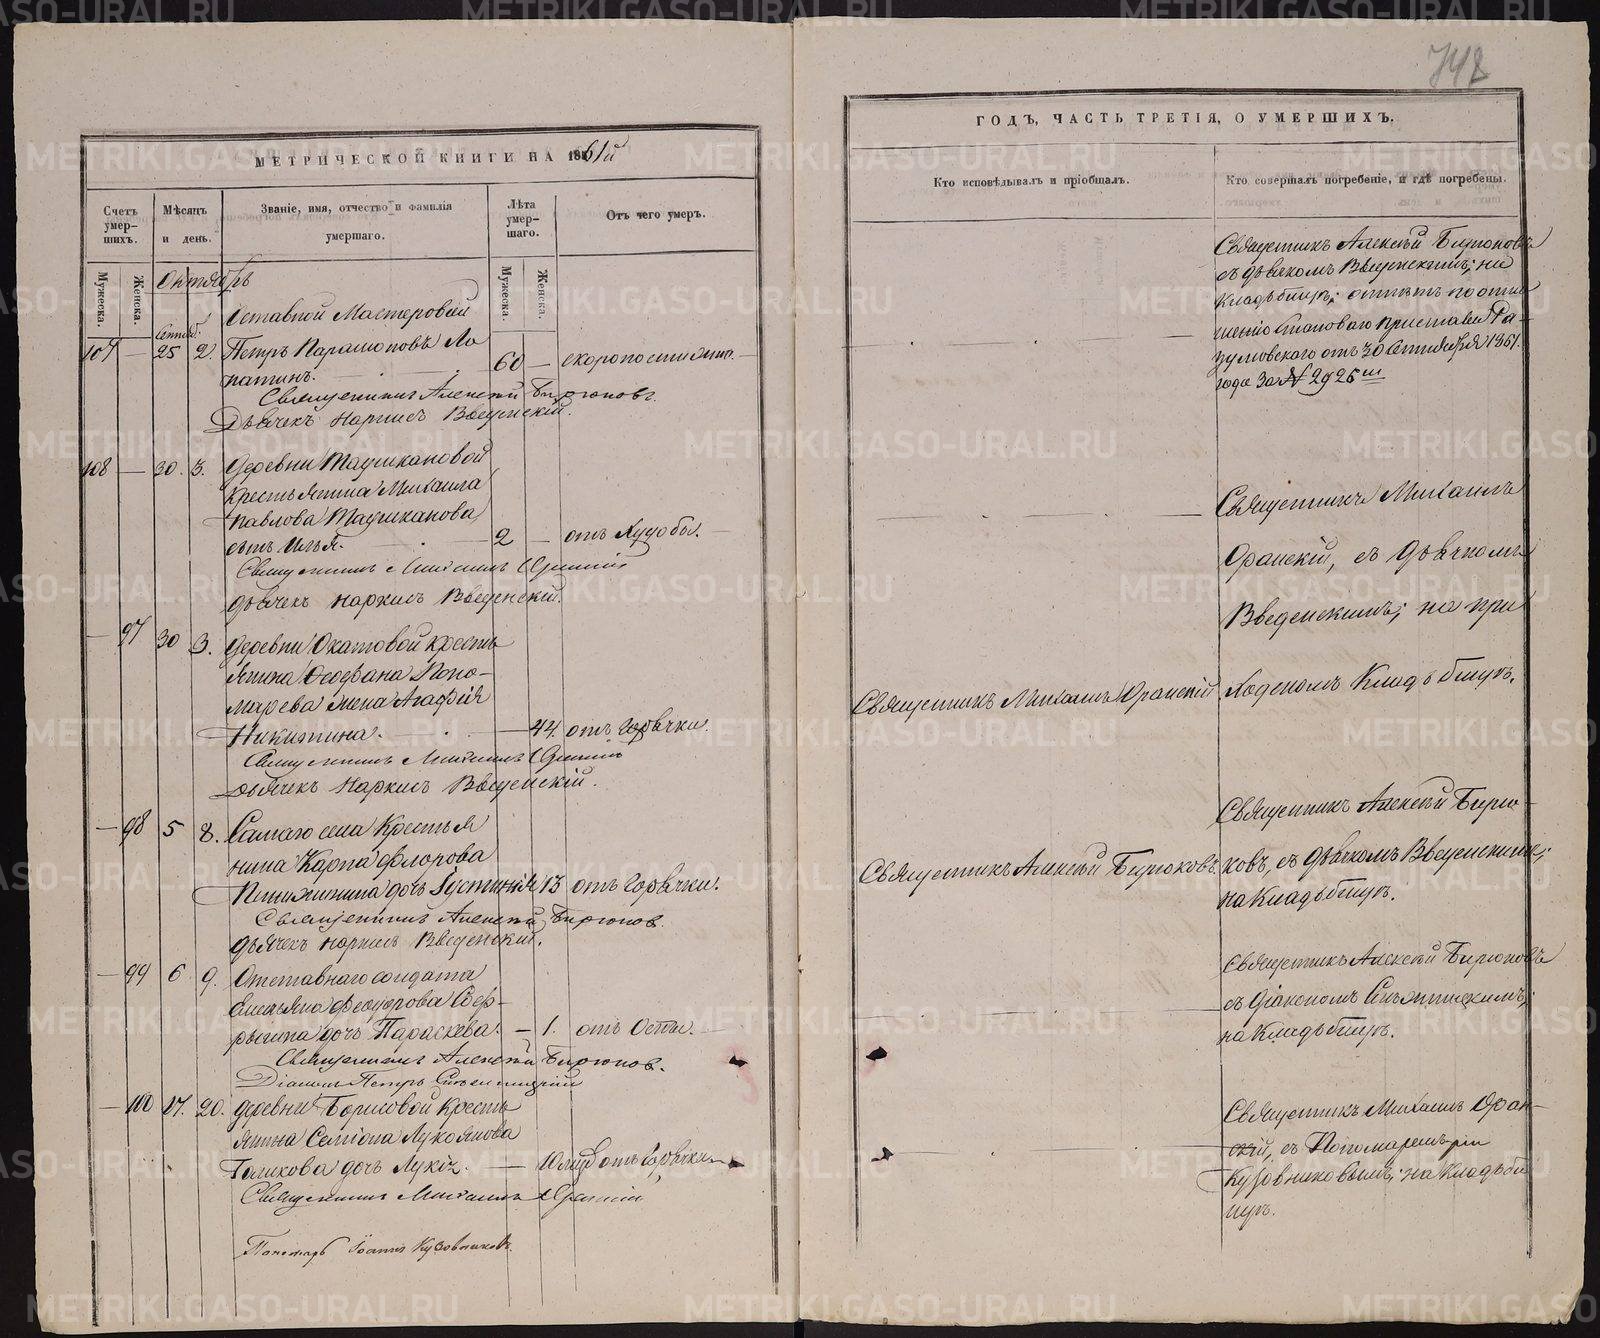 МЕТРИЧЕСКОЙ КНИГИ НА 1861й
Счетъ умер-шихъ.
Мѣсяцъ и день.
Званіе, имя, отчество и фамилія умершаго.
Лѣта умер-шаго.
Отъ чего умеръ.
Мужеска.
Женска.
Мужеска.
Женска.
Октябрь
Сентяб.
107 — 25 2. Отставной Мастеровой
Петръ Парамоновъ Ло
патинъ. 60 — скоропостижно. —
Священникъ Алексѣй Бирюковъ.
Дьячекъ Наркисъ Введенскій.
108 — 30. 3. Деревни
крестьянина Михаила
Павлова
сынъ Илья. 2 — отъ Худобы. —
Священникъ Михаилъ
Дьячекъ Наркисъ Введенскій.
— 97 30 3. Деревни Окатовой кресть
янина Поно-
марева жена Агафія
Никитина. 44. отъ Горячки.
Священникъ Михаилъ
Дьячекъ Наркисъ Введенскій.
— 98 5 8. Самаго села Крестья
нина Карпа Флорова
дочь Іустинія 13 отъ Горячки.
Священникъ Алексѣй Бирюковъ.
Дьячекъ Наркисъ Введенскій.
— 99 6 9. Отставнаго солдата
Емельяна Феодорова
дочь Параскева. — 1. отъ Оспы.
Священникъ Алексѣй Бирюковъ.
Діаконъ Петръ
— 100 17. 20. Деревни Борисовой Кресть
янина Семіона Лукоянова
дочь — 10 отъ Горячки
Священникъ Михаилъ
Пономарь Іоаннъ Кузовниковъ.
742
ГОДЪ, ЧАСТЬ ТРЕТІЯ, О УМЕРШИХЪ.
Кто исповѣдывалъ и пріобщалъ.
Кто совершалъ погребеніе, и гдѣ погребены.
Священникъ Алексѣй Бирюковъ
съ дьячкомъ Введенскимъ; на
Кладбищѣ; отпѣтъ по отно
шенію Становаго Пристава Ра-
зумовскаго отъ 30 Сентября 1861.
года за № 2925
Священникъ Михаилъ
съ дьячкомъ
Введенскимъ; на при
Священникъ Михаилъ
ходскомъ Кладбищѣ.
Священникъ Алексѣй Бирю-
Священникъ Алексѣй Бирюковъ.
ковъ, съ дьячкомъ Введенскимъ;
на Кладбищѣ.
Священникъ Алексѣй Бирюковъ
съ Діакономъ
на Кладбищѣ.
Священникъ Михаилъ
съ Пономаремъ
Кузовниковымъ; на кладби
щѣ.
METRIKI.GASO-URAL.RU